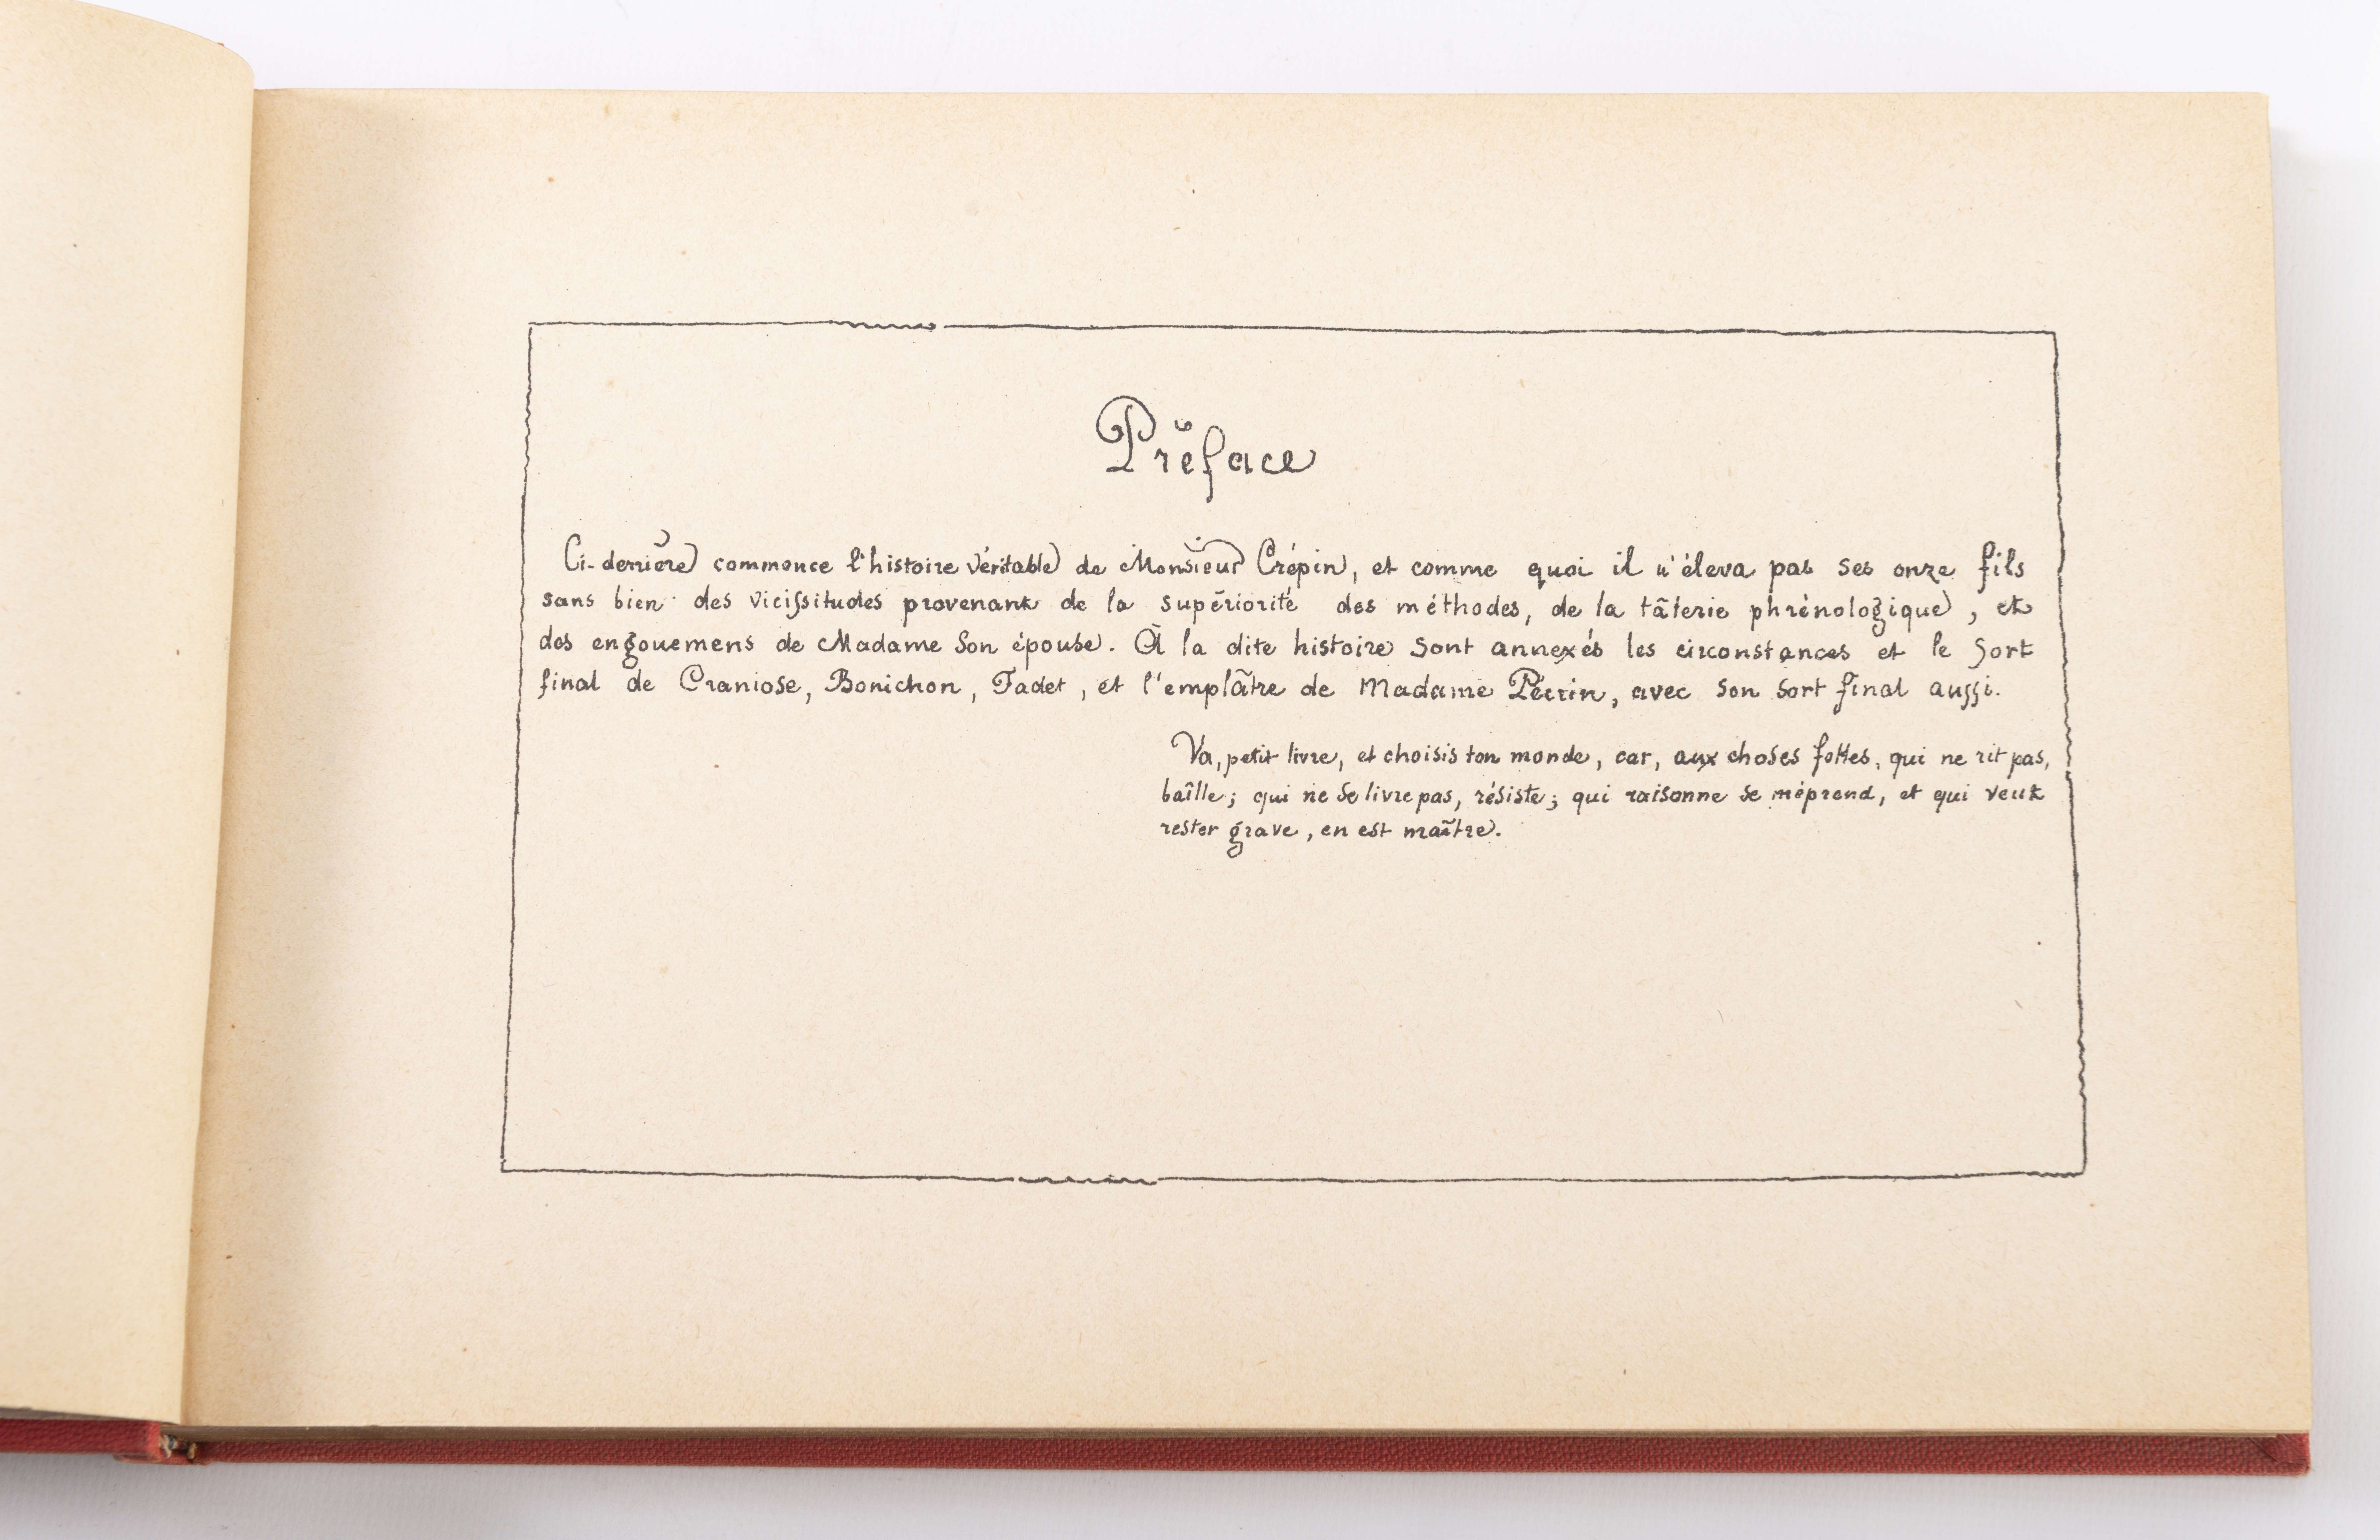 Préface
Ci-derrière commence l'histoire véritable de Monsieur Crépin, et comme quoi il n'éleva pas ses onze fils
sans bien des vicissitudes provenant de la supériorité des méthodes, de la tâterie phrénologique, et
des engouemens de Madame son épouse. À la dite histoire sont annexés les circonstances et le sort
final de Craniose, Bonichon, Fadet, et l'emplâtre de Madame Péerin, avec son sort final aussi.
Va, petit livre, et choisis ton monde, car, aux choses folles, qui ne rit pas,
baîlle; qui ne se livre pas, résiste; qui raisonne se méprend, et qui veut
rester grave, en est maître.